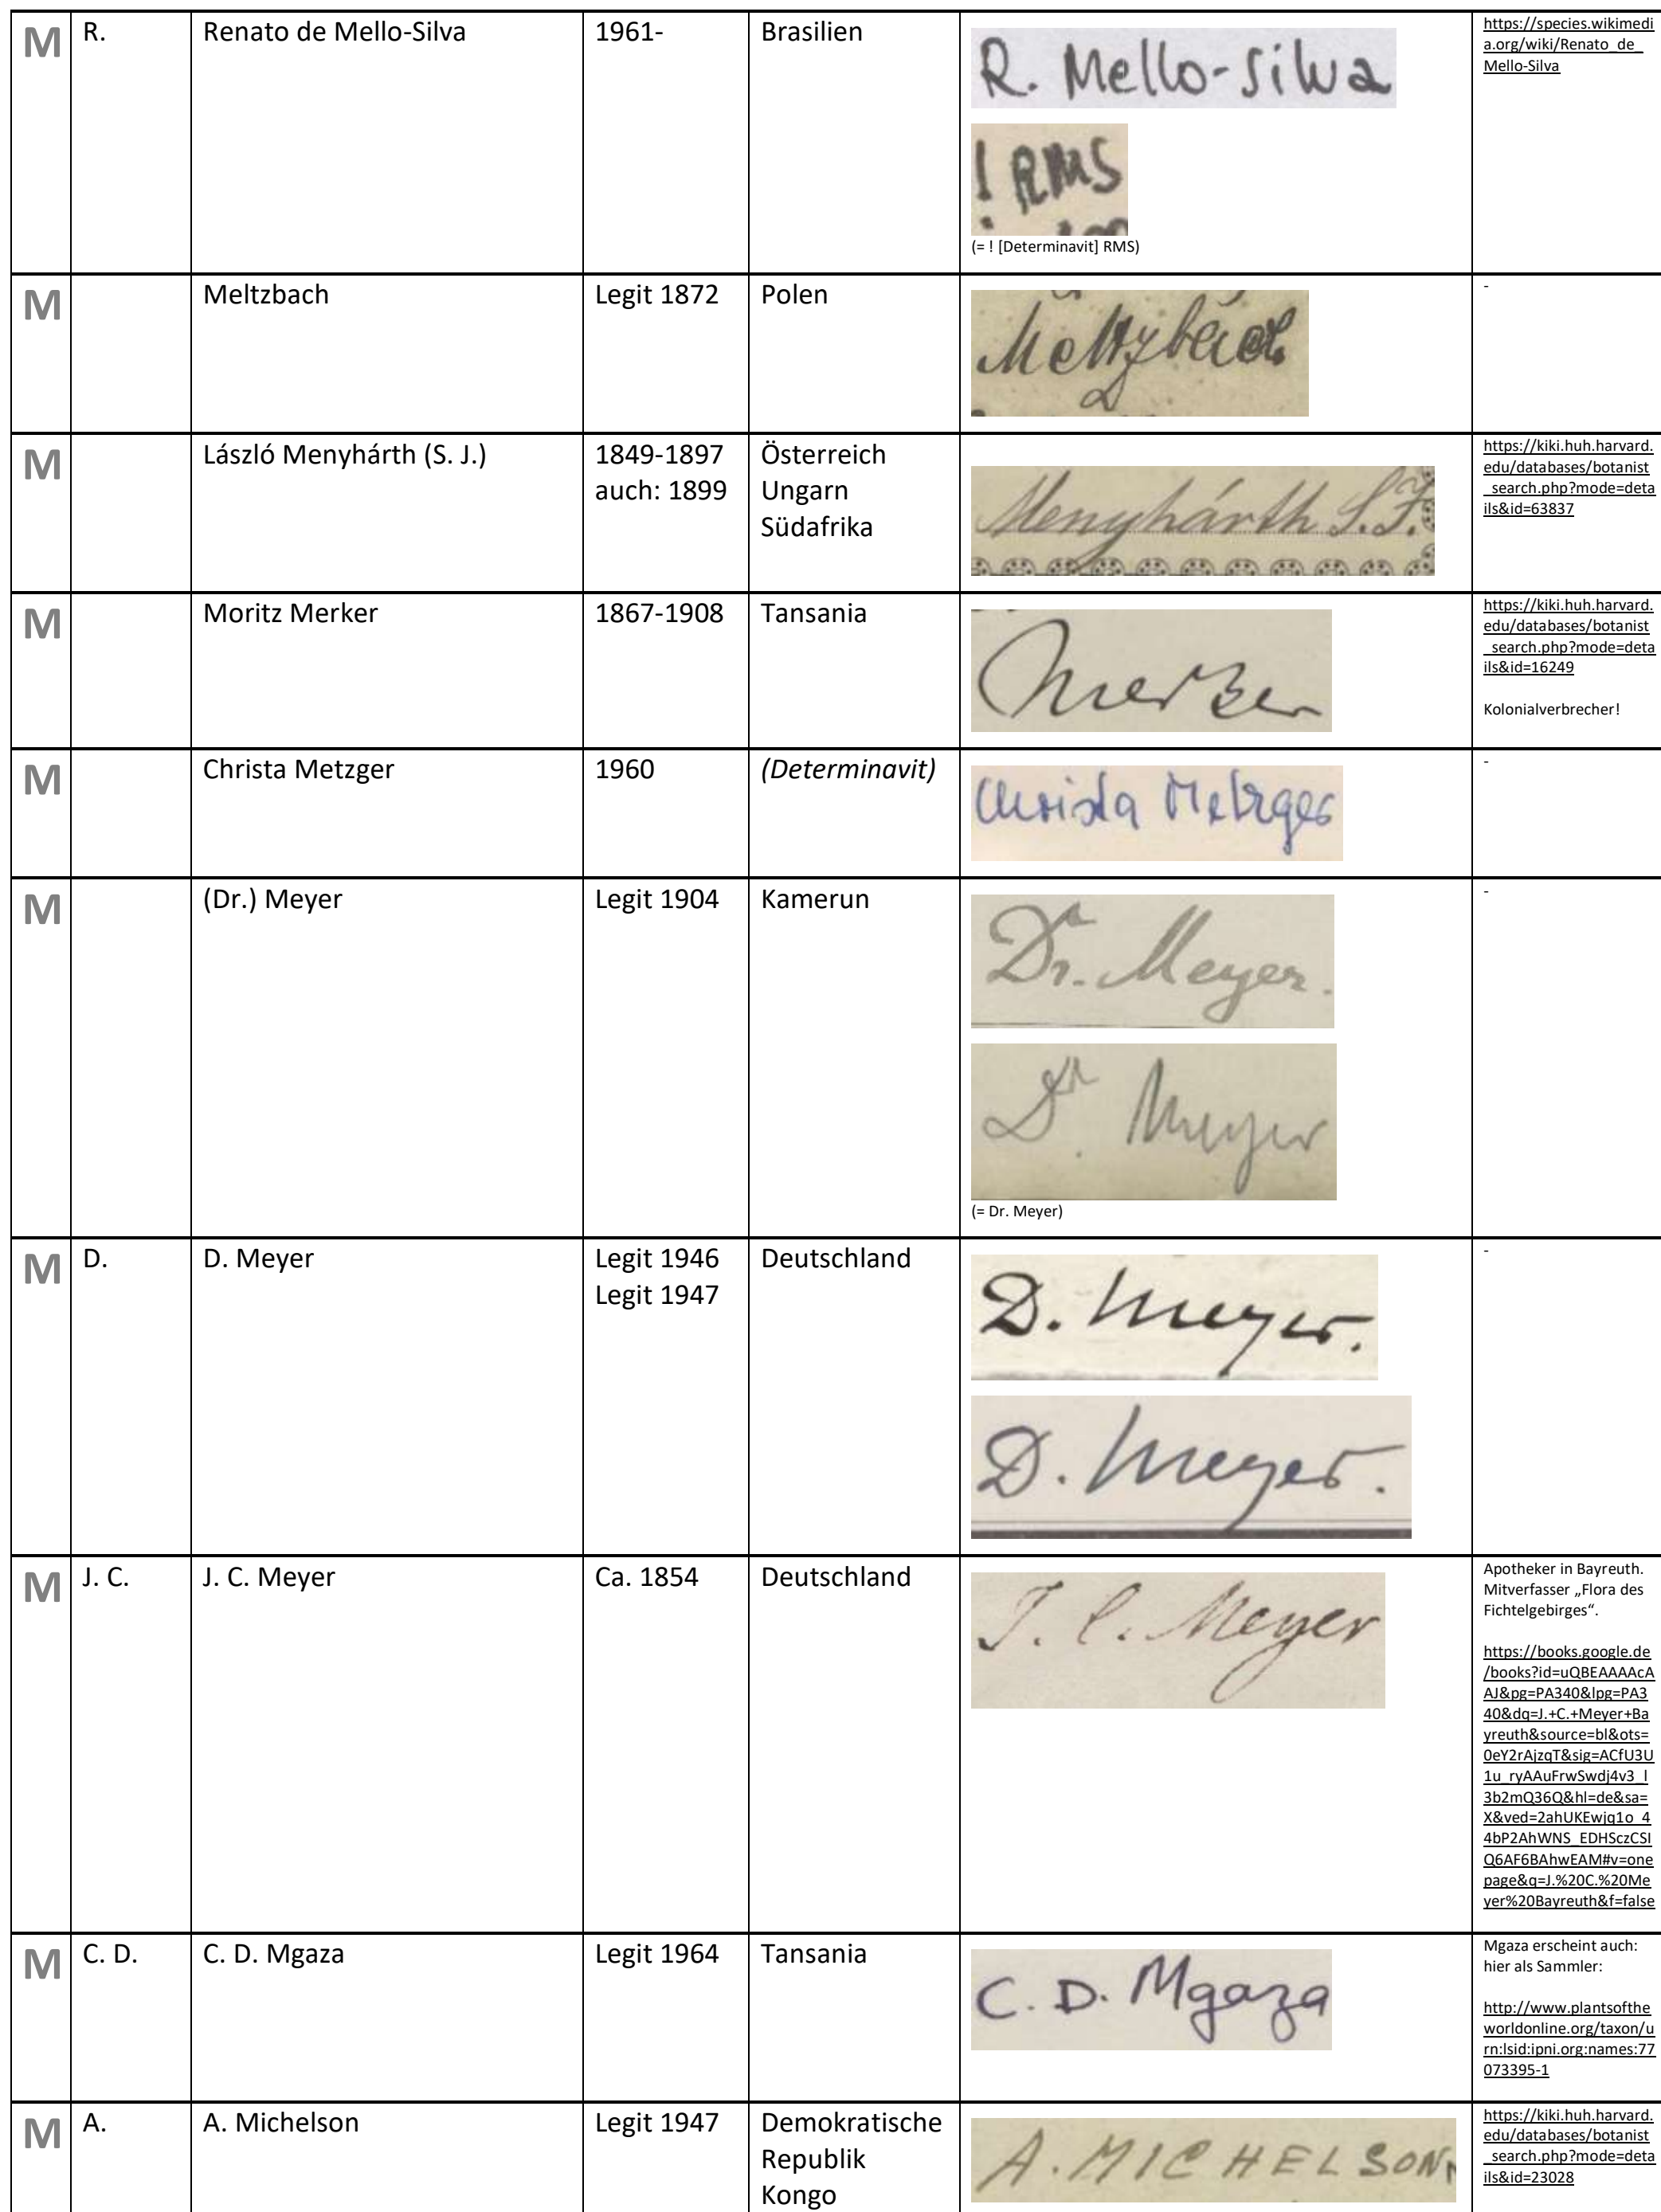 M R. Renato de Mello-Silva 1961- Brasilien
R. Mello-Silva
! RMS
(= ! [Determinavit] RMS)
https://species.wikimedi
a.org/wiki/Renato_de_
Mello-Silva
M Meltzbach Legit 1872 Polen
Meltzbach
-
M László Menyhárth (S. J.) 1849-1897 Österreich
auch: 1899 Ungarn
Südafrika
Menyhárth S.J.
https://kiki.huh.harvard.
edu/databases/botanist
_search.php?mode=deta
ils&id=63837
M Moritz Merker 1867-1908 Tansania
Merker
https://kiki.huh.harvard.
edu/databases/botanist
_search.php?mode=deta
ils&id=16249
Kolonialverbrecher!
M Christa Metzger 1960 (Determinavit)
Christa Metzger
-
M (Dr.) Meyer Legit 1904 Kamerun
Dr. Meyer.
Dr. Meyer
(= Dr. Meyer)
-
M D. D. Meyer Legit 1946 Deutschland
Legit 1947
D. Meyer.
D. Meyer.
-
M J. C. J. C. Meyer Ca. 1854 Deutschland
J. C. Meyer
Apotheker in Bayreuth.
Mitverfasser „Flora des
Fichtelgebirges“.
https://books.google.de
/books?id=uQBEAAAAcA
AJ&pg=PA340&lpg=PA3
40&dq=J.+C.+Meyer+Ba
yreuth&source=bl&ots=
0eY2rAjzqT&sig=ACfU3U
1u_ryAAuFrwSwdj4v3_l
3b2mQ36Q&hl=de&sa=
X&ved=2ahUKEwjq1o_4
4bP2AhWNS_EDHSczCSI
Q6AF6BAhwEAM#v=one
page&q=J.%20C.%20Me
yer%20Bayreuth&f=false
M C. D. C. D. Mgaza Legit 1964 Tansania
C. D. Mgaza
Mgaza erscheint auch:
hier als Sammler:
http://www.plantsofthe
worldonline.org/taxon/u
rn:lsid:ipni.org:names:77
073395-1
M A. A. Michelson Legit 1947 Demokratische
Republik
Kongo
A. MICHELSON
https://kiki.huh.harvard.
edu/databases/botanist
_search.php?mode=deta
ils&id=23028